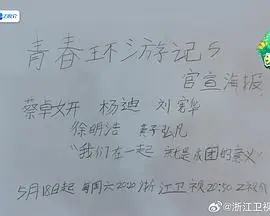 Z视介
青春环游记5
官宣海报
蔡卓妍 杨迪 刘宪华
徐明浩 黄子弘凡
“我们在一起 就是成团的意义”
5月18日起 每周六2020浙江卫视20:50 Z视介
@浙江卫视